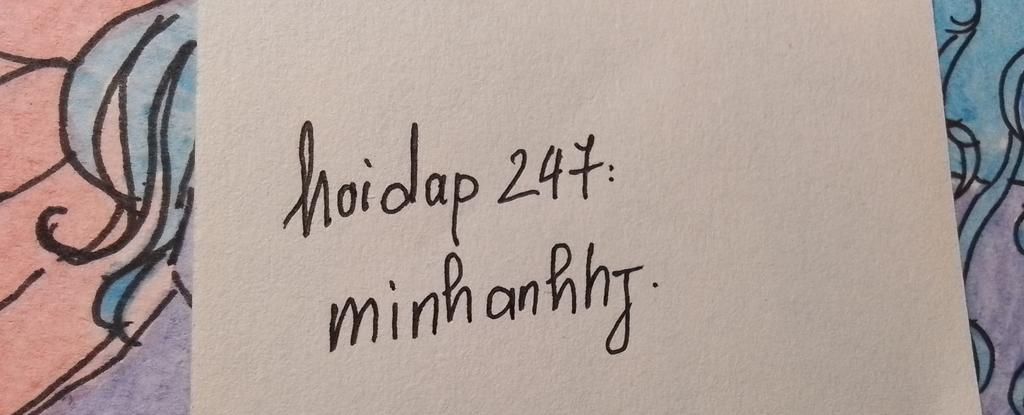 hoidap 247:
minhanhhj.